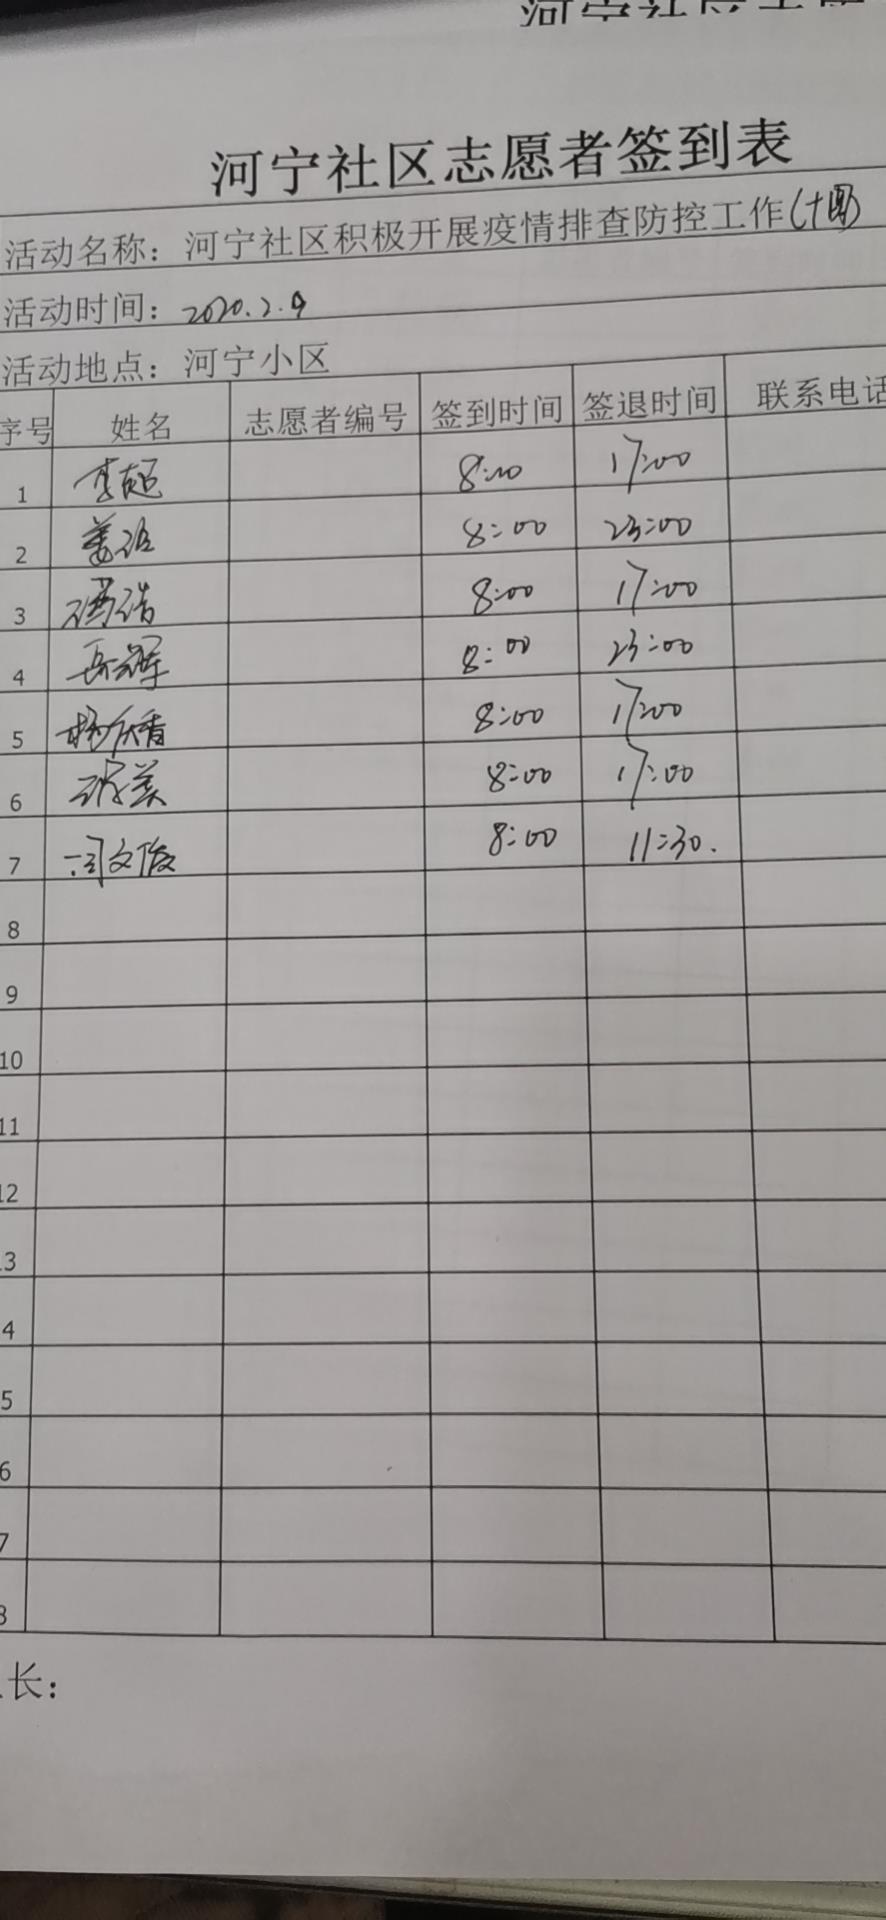 河宁社区志愿者签到表
活动名称：河宁社区积极开展疫情排查防控工作(十四)
活动时间：2020.2.9
活动地点：河宁小区
序号 姓名 志愿者编号 签到时间 签退时间 联系电话
1 李超 8:00 17:00
2 8:00 23:00
3 8:00 17:00
4 岳辉 8:00 23:00
5 杨庆香 8:00 17:00
6 8:00 17:00
7 闫文俊 8:00 11:30.
8
9
10
11
12
13
14
15
16
17
18
长：